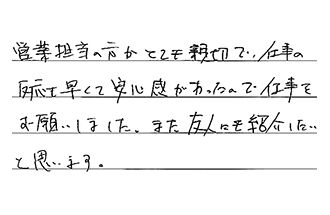 営業担当の方がとても親切で、仕事の
反応も早くて安心感があったので仕事を
お願いしました。また友人にも紹介したい
と思います。